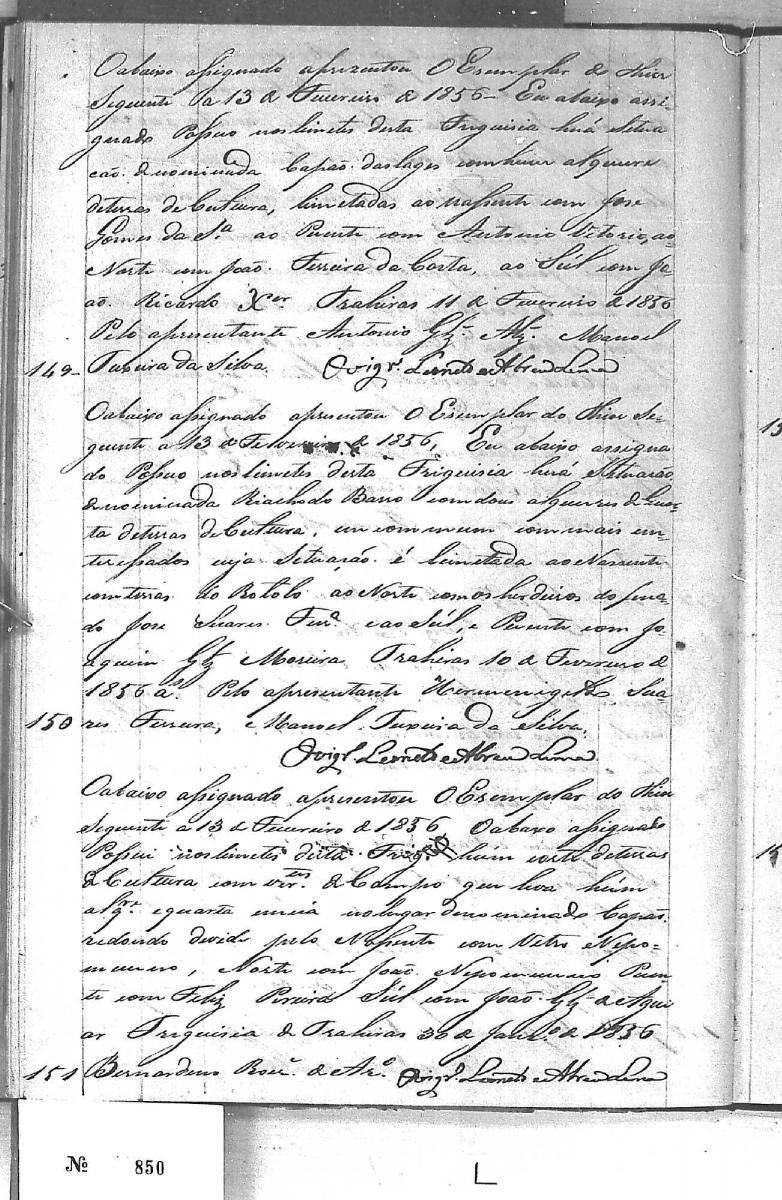 O abaixo assignado aprezentou O Esemplar do thior
Seguente a 13 de Fevereiro de 1856 - Eu abaixo assi-
gnado Possuo nos limetes desta Friguisia huã setua
cão denominada Capão das lages com hum alquere
de terras de Cultura, limetadas ao nassente com Jose
Gomes da Sª ao Puente com Antonio Vitorio, ao
Norte com João Ferreira da Costa, ao Súl com Jo-
aõ Ricardo Xer Trahiras 11 de Fevereiro de 1856
Pelo apresentante Antonio Glz Manoel
149- Tuxeira da Silva. O vigrº Leonel de Abreu Lima
O abaixo assignado apresentou O Esemplar do thior Se-
guente a 13 de Fevereiro de 1856, Eu abaixo assigna
do Possuo nos limetes desta Friguisia huã Setuacão
denominada Riacho do Barro com dous alqueres de Quar-
ta de terras de Cultura, em commum com mais in-
teressados cuja Setuacão é limetada ao Nassente
com terras do Rotolo ao Norte com os herdeiros do fina-
do Jose Soares Ferª e ao Súl, e Puente com Jo-
aquim Glz Moreira Trahiras 10 de Fevereiro de
1856 aˢ. Pelo apresentante Hermenigildo Sua-
150 res Ferreira, Manoel Tuxeira da Silva.
O vigrº Leonel de Abreu Lima
O abaixo assignado apresentou O Esemplar do thior
Seguente a 13 de Fevereiro de 1856 O abaxo assignado
Possui nos limetes desta Frigª hum corte de terras
de Cultura com de Campo que leva húm
alqre e quarta meia no lugar denominado Capão
redondo devide pelo Nassente com Vetro Nepo-
muceno, Norte com João Nepomuceno Puen
te com Feliz Pireira Súl com João Glz de Agui
ar Friguisia de Trahiras 30 de Janrº de 1856
151 Bernardino Rorz de Arº O vigrº Leonel de Abreu Lima
15
15
Nº 850
L